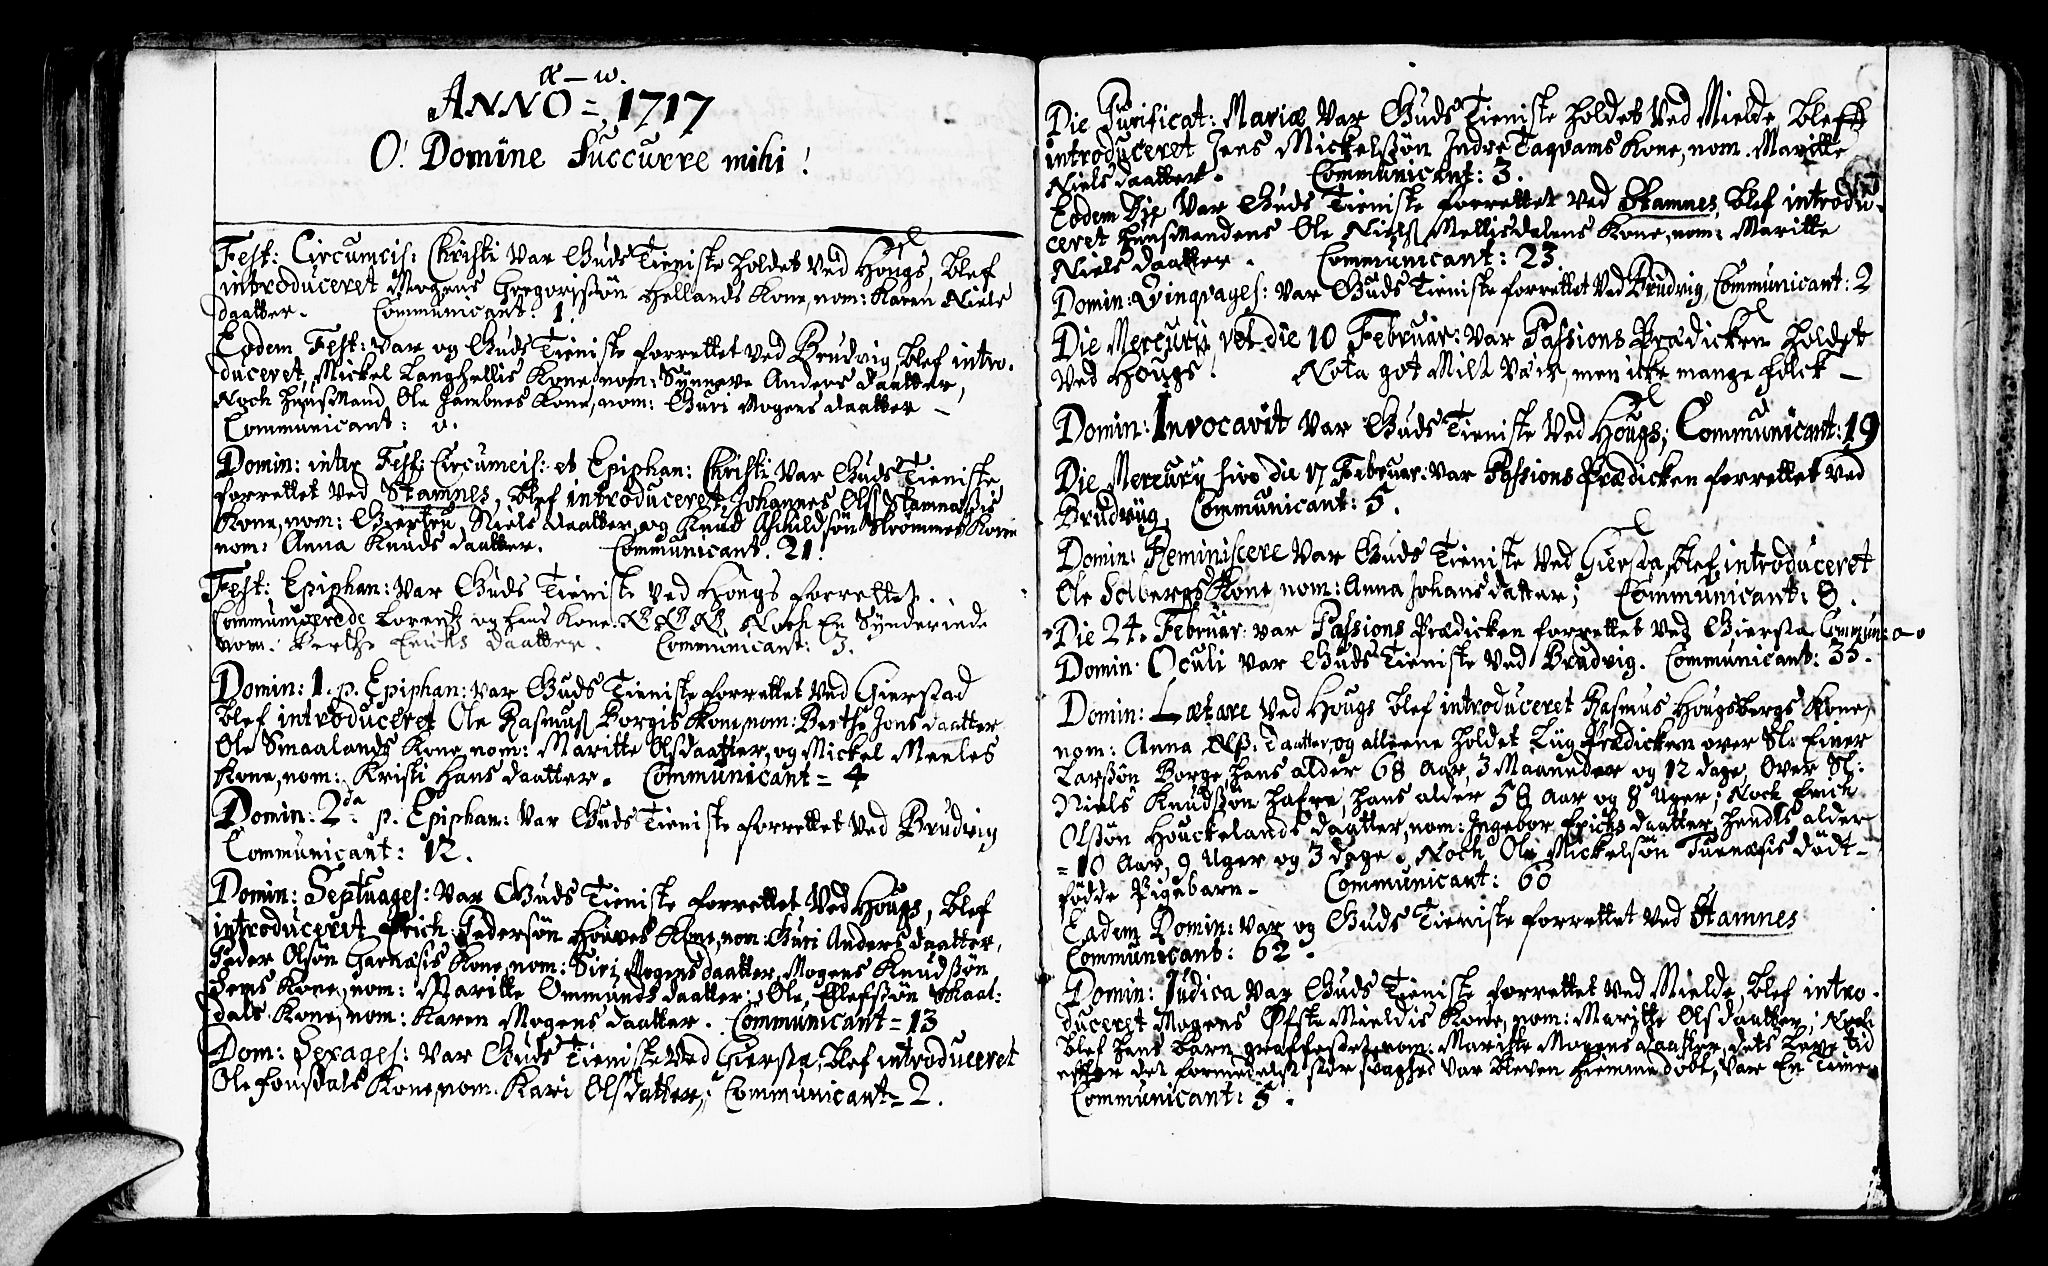 α — ω.
ANNO = 1717
O! Domine Succurre mihi!
Fest: Circumcis: Christi var Guds Tieniste holdet ved Hougs, blef
introduceret Mogens Gregorssön Hellands Kone, nom: Karen Niels
daatter. Communicant: 1.
Eodem Fest: var og Guds Tieniste forrettet ved Brudvig, blef intro-
duceret, Mickel Langhellis Kone, nom: Synneve Anders daatter,
Noch Huusmand Ole Jambnes Kone, nom: Guri Mogens daatter —
Communicant: 0.
Domin: inter Fest: Circumcis: et Epiphan: Christi var Guds Tieniste
forrettet ved Stamnes, blef introduceret, Johannes Ols Stamnæsis
Kone, nom: Giertru Niels daatter, og Knud Askildsön Strommes Kone
nom: Anna Knuds daatter. Communicant. 21.
Fest: Epiphan: var Guds Tieniste ved Hougs forrettet.
Communicerede Lorentz og hans Kone. NB NB NB. Noch En Synderinde
nom: Berthe Ericks daatter. Communicant: 3.
Domin: 1. p. Epiphan: var Guds Tieniste forrettet ved Gierstad
blef introduceret Ole Rasmus Borgis Kone, nom: Berthe Jons daatter
Ole Smaalands Kone, nom: Maritte Olsdaatter, og Mickel Meeles
Kone, nom: Kristi Hans daatter. Communicant = 4
Domin: 2da p. Epiphan: var Guds Tieniste forrettet ved Brudvig
Communicant: 12.
Domin: Septuages: var Guds Tieniste forrettet ved Hougs, blef
introduceret Erich Pedersön Houves Kone, nom: Guri Anders daatter,
Peder Olsön Garnæsis Kone, nom: Siri Mogens daatter, Mogens Knudssön
Sems Kone, nom: Maritte Ommunds daatter; Ole Ellefssön Skaal:
dals Kone, nom: Karen Mogens daatter. Communicant = 13
Dom: Sexages: var Guds Tieniste ved Giersta, blef introduceret
Ole Fousdals Kone, nom. Kari Olsdatter; Communicant = 2.
Die Purificat: Mariæ var Guds Tieniste holdet ved Mielde, bleff
introduceret Jens Mickelssön Indre Taqvams Kone, nom. Maritte
Niels daatter. Communicant: 3.
Eodem Die var Guds Tieniste forrettet ved Stamnes, blef introdu-
ceret Huusmandens Ole Niels Mellisdalens Kone, nom: Maritte
Niels daatter. Communicant: 23.
Domin: Qvinqvages: var Guds Tieniste forrettet ved Brudvig, Communicant: 2
Die Mercurij, vel die 10 Februar: var Passions Prædicken holdet
ved Hougs! Nota got Milt Væir, men icke mange folck —
Domin: Invocavit var Guds Tieniste ved Hougs, Communicant: 19
Die Mercurij sive die 17 Februar: var Passions Prædicken forrettet ved
Brudvig, Communicant: 5.
Domin: Reminiscere var Guds Tieniste ved Giersta, blef introduceret
Ole Solbergs Kone nom: Anna Johans datter; Communicant: 8.
Die 24. Februar: var Passions Prædicken forrettet ved Giersta Commun: 0
Domin: Oculi var Guds Tieniste ved Brudvig. Communicant: 35.
Domin: Lætare ved Hougs blef introduceret Rasmus Hougsbergs Kone,
nom: Anna Ols: daatter, og alleene holdet Liig Prædicken over Sl: Einer
Larssön Borge, hans alder 68 aar, 3 Maaneder og 12 dage, Over Sl:
Niels Knudssön Hafre, hans alder 58 aar og 8 Uger; Noch Erich
Olssön Houckelands daatter, nom: Ingebor Erichs daatter, hendes alder
= 10 Aar, 9 Uger og 3 dage. Noch Ole Mickelsön Turnæsis död-
fødde Pigebarn. Communicant: 60
Eadem Domin: var og Guds Tieniste forrettet ved Stamnes
Communicant: 62.
Domin: Judica var Guds Tieniste forrettet ved Mielde, blef intro-
duceret Mogens Öfste Mieldis Kone, nom: Marithe Olsdaatter; Noch
blef hans barn graffestet nom: Maritte Mogens daatter, dets Leve tid
efter det formedelst stor svaghed var bleven hiemme döbt, var En Time
Communicant: 5.